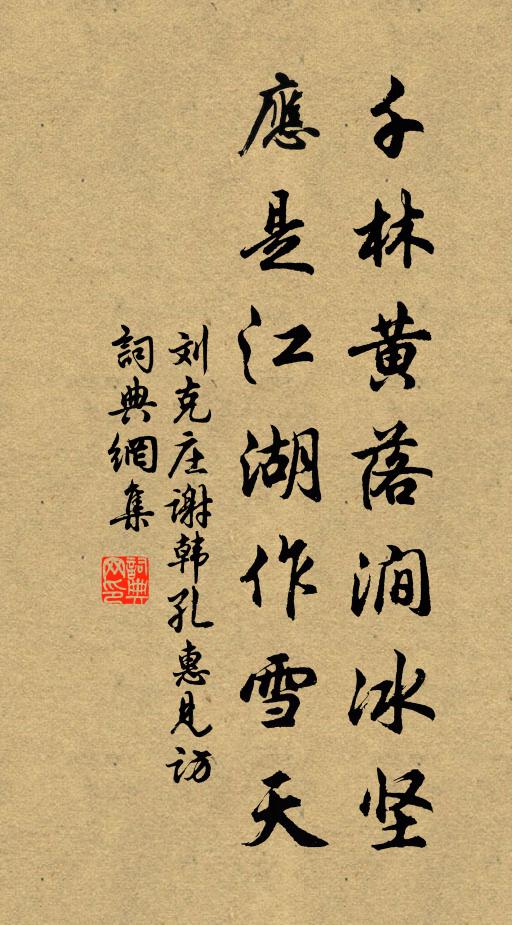 千林黄落涧冰坚
應是江湖作雪天
刘克庄谢韩孔惠见访
詞典網集
詞典网印